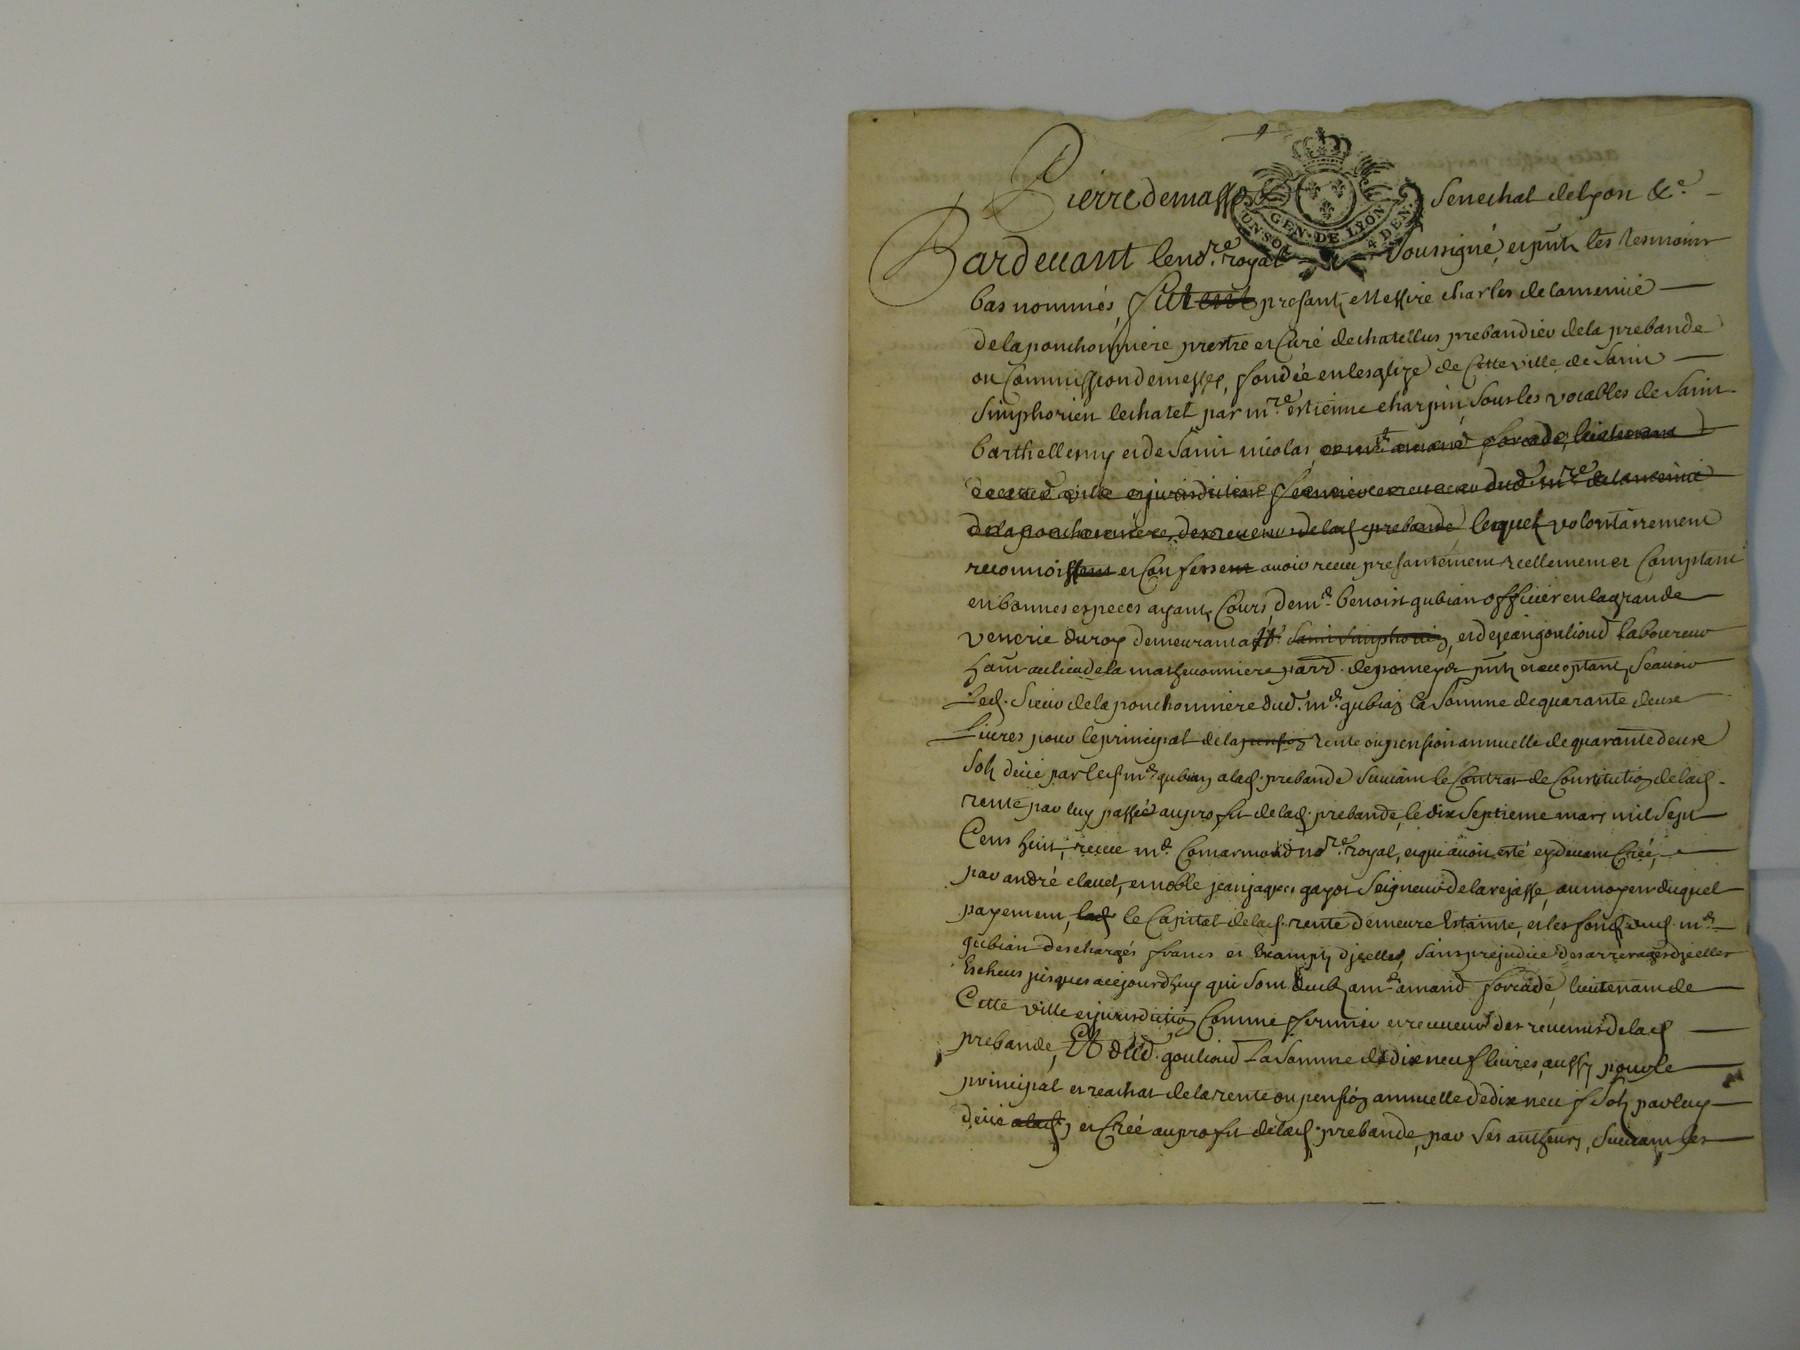 Pierre demasso Senechal delyon &c.
GEN. DE LYON
4 DEN.
Pardevant lenore. royal soussigné, et pnts les tesmoins
bas nommés, fut present, Messire charles delamenüe
delaponchonniere prestre et Curé dechatellus prebandier dela prebande
ou Commission demesses, fondée en lesglize de Cette ville de Saint
Simphorien lechatel par mre. estienne charpin, sous les vocables de Saint
barthellemy et de Saint nicolas, fermier et receveur dud. mre. delamenüe
delaponchonniere, des revenus delad. prebande, lequel volontairement
reconnoissent et Confessent avoir receu presantement reellement et Comptant
en bonnes especes ayant Cours, de mr. benoist gubian officier en lagrande
venerie duroy demeurant a St. Saint Simphorien, et dejean goulioud laboureur
hant. au lieu de la mathevonniere parr. depomeys pnts et acceptant, Scavoir
Led. Sieur de la ponchonniere dud. mr. gubian la Somme dequarante deux
Livres pour le principal de la pension rente ou pension annuelle de quarante deux
Sols deüe par led. mr. gubian a lad. prebande Suivant le Contrat de Constitution de lad.
rente par luy passée au profit de lad. prebande, le dix Septieme mars mil Sept
Cens huit, receu me. Comarmond nore. royal, et qui avoit esté cydevant Créé,
par andré clavel, et noble jean jaques gayot Seigneur de la rejasse, au moyen duquel
payement, lad. le Capital de lad. rente demeure Estainte, et les fonds dud. mr.
gubian descharges francs et Exempts d'jcelles, Sans prejudice des arrerages d'jcelles
Escheus jusques a cejourd'huy qui sont deubs a mr. amand forcade, lieutenant de
Cette ville et jurisdiction Comme fermier et receveur des revenus de lad.
prebande, Et dud. goulioud La Somme de dixneuf livres, aussy pour le
principal et reachat de la rente ou pension annuelle de dixneuf Sols par luy
deüe a lad., et Créé au profit de lad. prebande, par Ses autheurs, Suivant les